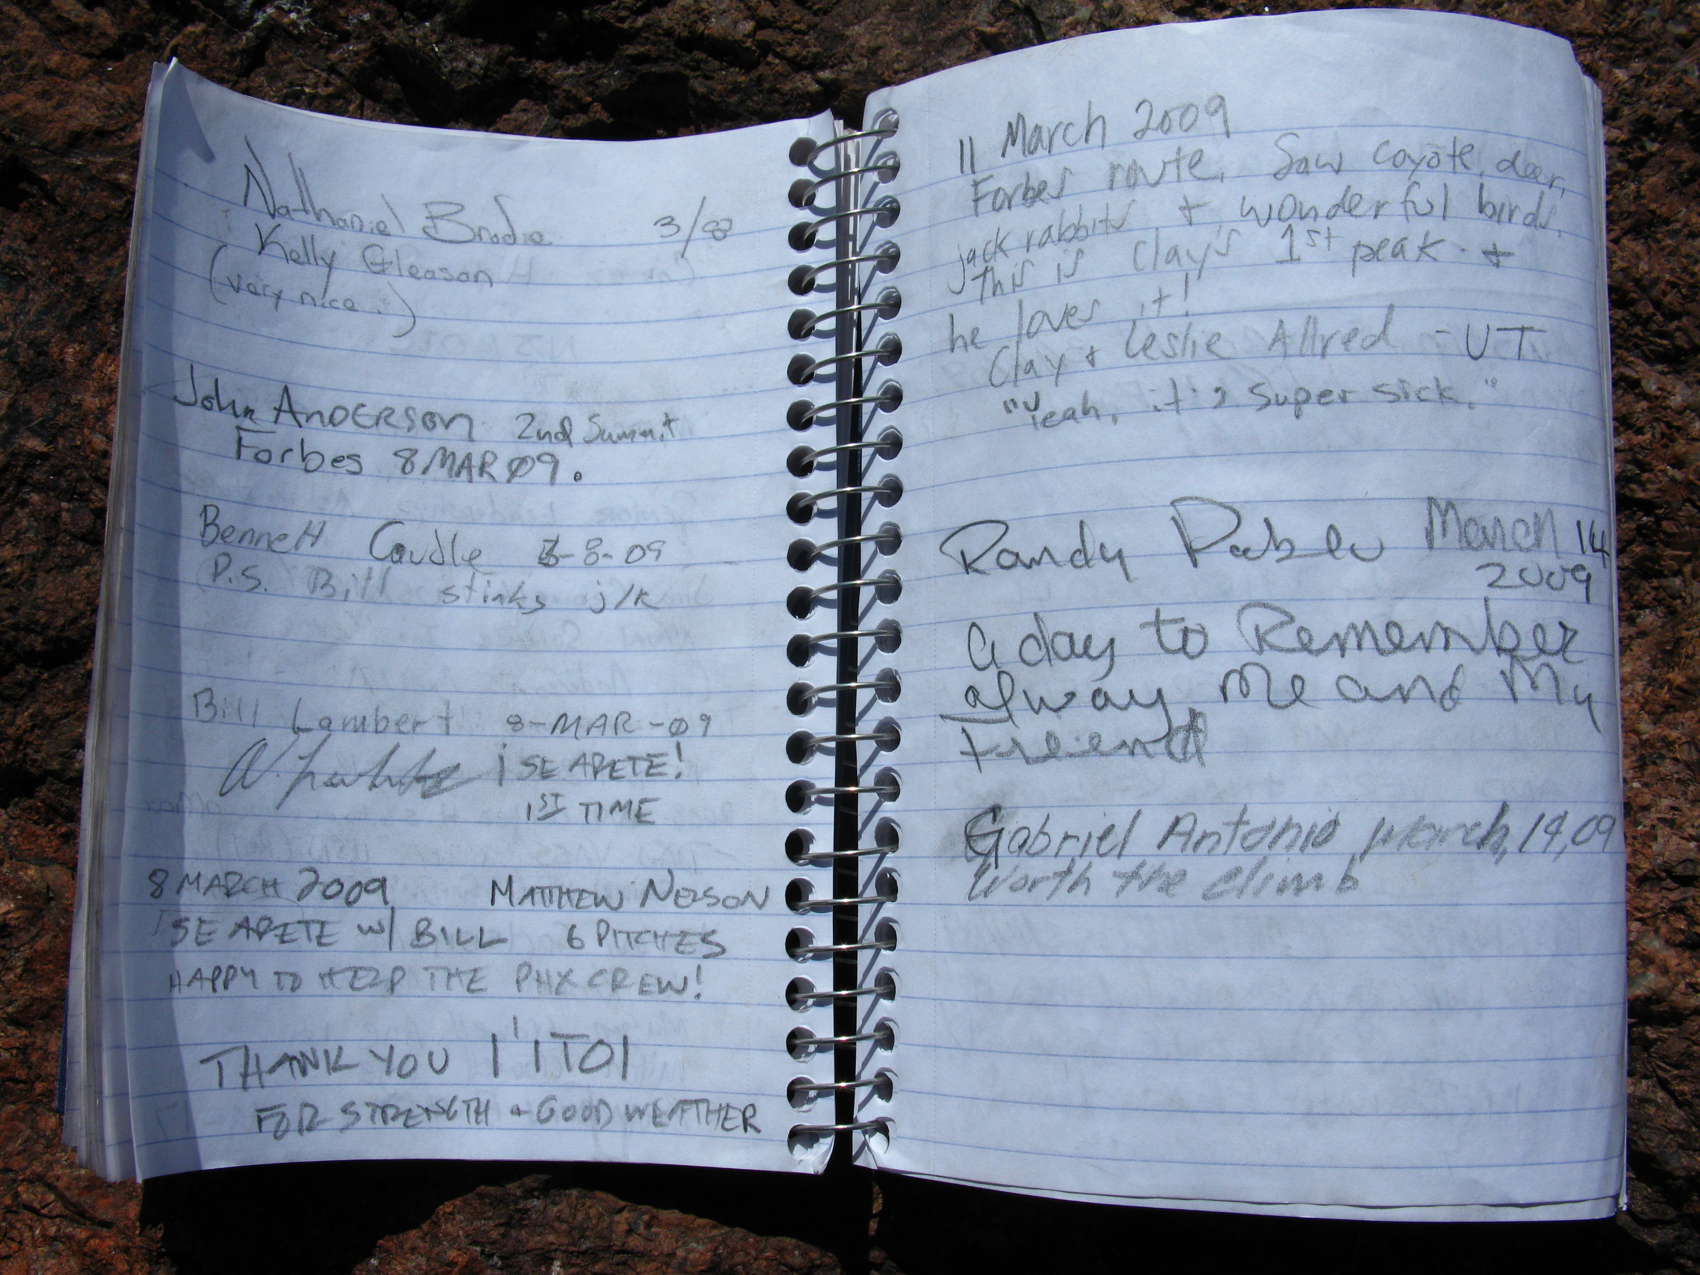 Nathaniel Brodie 3/8
Kelly Gleason
(very nice :)
John Anderson 2nd Summit
Forbes 8 MAR 09.
Bennett Caudle 3-8-09
P.S. Bill stinks j/k
Bill Lambert 8-MAR-09
¡ SE ARETE!
1ST TIME
8 MARCH 2009 MATTHEW NELSON
SE ARETE w/ BILL 6 PITCHES
HAPPY TO HELP THE PHX CREW!
THANK YOU I'ITOI
FOR STRENGTH + GOOD WEATHER
11 March 2009
Forbes route. Saw coyote, deer,
jack rabbits + wonderful birds.
This is Clay's 1st peak +
he loves it!
Clay + Leslie Allred - UT
"Yeah, it's super sick."
Randy Pablo March 14
2009
a day to Remember
alway, Me and My
Freend
Gabriel Antonio March, 14, 09
Worth the climb